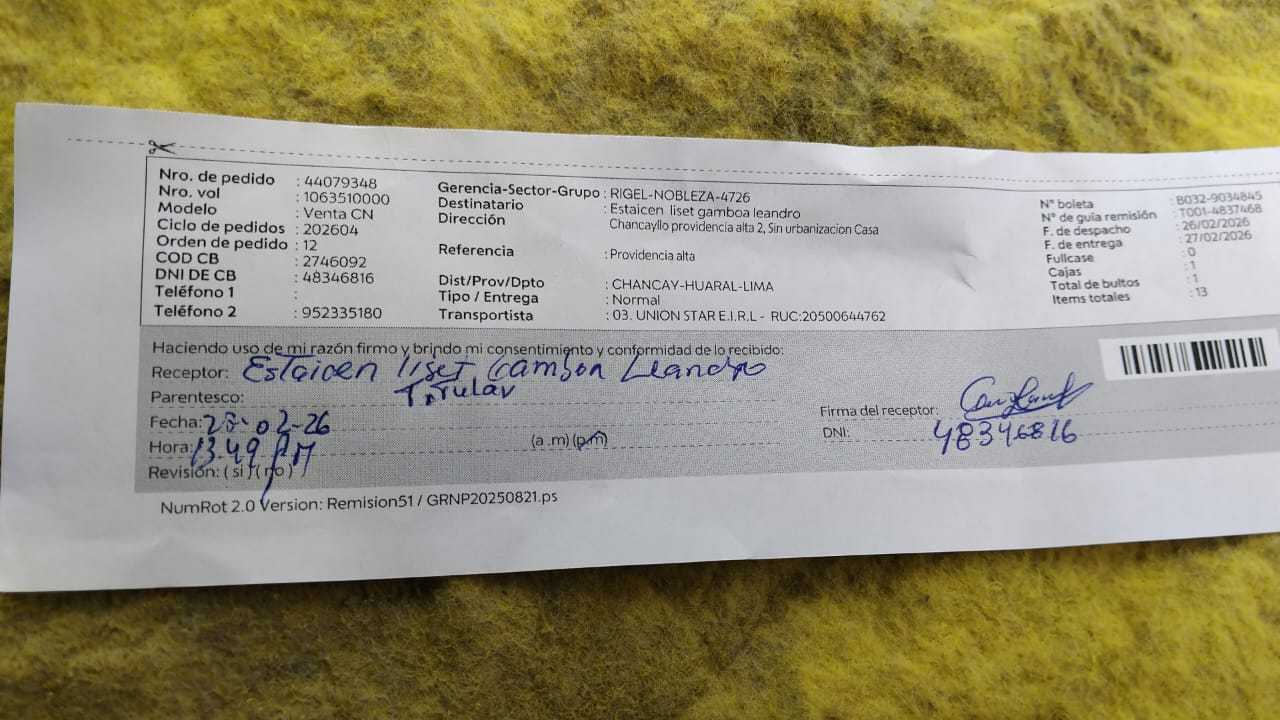 Nro. de pedido : 44079348
Nro. vol : 1063510000
Modelo : Venta CN
Ciclo de pedidos : 202604
Orden de pedido : 12
COD CB : 2746092
DNI DE CB : 48346816
Teléfono 1 :
Teléfono 2 : 952335180
Gerencia-Sector-Grupo : RIGEL-NOBLEZA-4726
Destinatario : Estaicen liset gamboa leandro
Dirección Chancayllo providencia alta 2, Sin urbanizacion Casa
Referencia : Providencia alta
Dist/Prov/Dpto : CHANCAY-HUARAL-LIMA
Tipo / Entrega : Normal
Transportista : 03. UNION STAR E.I.R.L - RUC:20500644762
N° boleta : B032-9034845
N° de guía remisión : T001-4837468
F. de despacho : 26/02/2026
F. de entrega : 27/02/2026
Fullcase : 0
Cajas : 1
Total de bultos : 1
Items totales : 13
Haciendo uso de mi razón firmo y brindo mi consentimiento y conformidad de lo recibido:
Receptor: Estaicen liset Gamboa Leandro
Parentesco: Titular
Fecha: 28-02-26
Hora: 13 49 PM (a .m) (p.m)
Revisión: ( si ) ( no )
Firma del receptor:
DNI: 48346816
NumRot 2.0 Version: Remision51 / GRNP20250821.ps